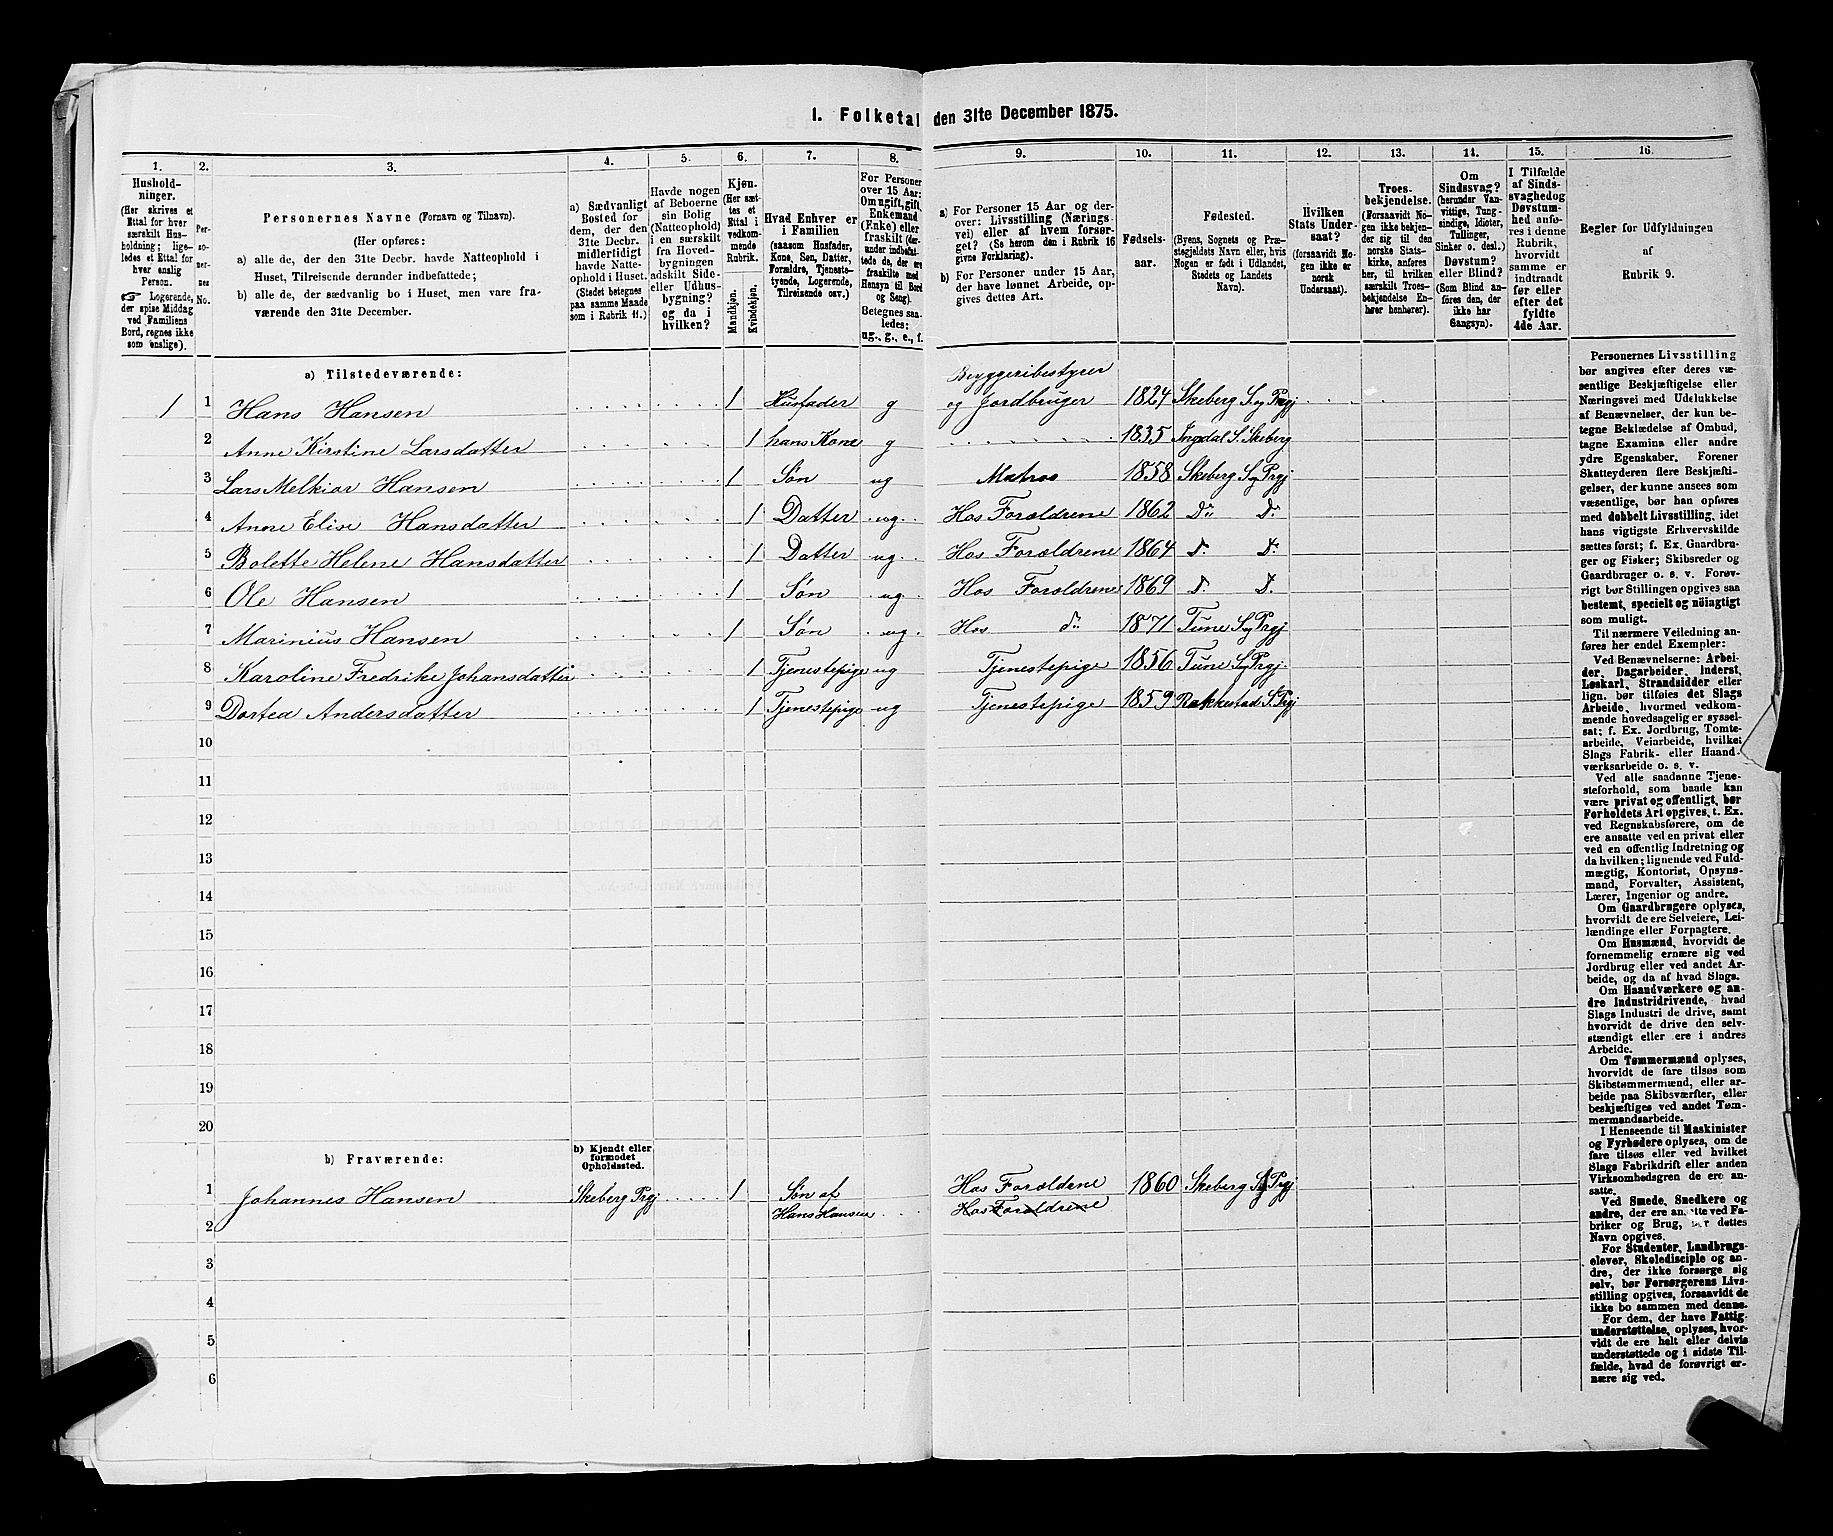 1. Folketal den 31te December 1875.
1. 2. 3. 4. 5. 6. 7. 8. 9. 10. 11. 12. 13. 14. 15. 16.
Hushold-
ninger.
(Her skrives et
Ettal for hver
særskilt Hus-
holdning; lige-
ledes et Ettal for
hver enslig
Person.
☞ Logerende,
der spise Middag
ved Familiens
Bord, regnes ikke
som enslige).
Per-
so-
ner-
nes
No.
Personernes Navne (Fornavn og Tilnavn).
(Her opføres:
a) alle de, der den 31te Decbr. havde Natteophold i
Huset, Tilreisende derunder indbefattede;
b) alle de, der sædvanlig bo i Huset, men vare fra-
værende den 31te December.
a) Sædvanligt
Bosted for
dem, der den
31te Decbr.
midlertidigt
havde Natte-
ophold i Huset.
(Stedet betegnes
paa samme Maade
som i Rubrik 11.)
Havde nogen
af Beboerne
sin Bolig
(Natteophold)
i en særskilt
fra Hoved-
bygningen
adskilt Side-
eller Udhus-
bygning?
og da i
hvilken?
Kjøn.
(Her sæt-
tes et
Ettal i
vedkom-
mende
Rubrik.
Mandkjøn.
Kvindekjøn.
Hvad Enhver er
i Familien
(saasom Husfader,
Kone, Søn, Datter,
Forældre, Tjeneste-
tyende, Logerende,
Tilreisende osv.)
For Personer
over 15 Aar:
Om ugift, gift,
Enkemand
(Enke) eller
fraskilt (der-
under indbefat-
tede de, der ere
fraskilte med
Hensyn til Bord
og Seng).
Betegnes saa-
ledes:
ug., g., e., f.
a) For Personer 15 Aar og der-
over: Livsstilling (Nærings-
vei) eller af hvem forsør-
get? (Se herom den i Rubrik 16
givne Forklaring).
b) For Personer under 15 Aar,
der have lønnet Arbeide, op-
gives dettes Art.
Fødsels-
aar.
Fødested.
(Byens, Sognets og Præ-
stegjeldets Navn eller, hvis
Nogen er født i Udlandet,
Stedets og Landets
Navn).
Hvilken
Stats Under-
saat?
(forsaavidt No-
gen ikke er
norsk
Undersaat).
Troes-
bekjendelse.
(Forsaavidt No-
gen ikke bekjen-
der sig til den
norske Stats-
kirke, anføres
her, til hvilken
særskilt Troes-
bekjendelse En-
hver henhører).
Om
Sindssvag?
(herunder Van-
vittige, Tung-
sindige, Idioter,
Tullinger,
Sinker o. desl.)
Døvstum?
eller Blind?
(Som Blind an-
føres den, der
ikke har
Gangsyn).
I Tilfælde
af Sinds-
svaghed og
Døvstum-
hed anfø-
res i denne
Rubrik,
hvorvidt
samme er
indtraadt
før eller
efter det
fyldte
4de Aar.
Regler for Udfyldningen
af
Rubrik 9.
a) Tilstedeværende:
Bryggeribestyrer
1 1 Hans Hansen 1 Husfader g og Jordbruger 1824 Skeberg S og Prgj
2 Anne Kirstine Larsdatter 1 hans Kone g 1835 Ingedal S. Skeberg
3 Lars Melkior Hansen 1 Søn ug Matros 1858 Skeberg S og Prgj
4 Anne Elise Hansdatter 1 Datter ug. Hos Forældrene 1862 Do Do
5 Bolette Helene Hansdatter 1 Datter ug. Hos Forældrene 1864 do Do
6 Ole Hansen 1 Søn ug. Hos Forældrene 1869 do Do
7 Marinius Hansen 1 Søn ug. Hos do 1871 Tune S og Prgj
8 Karoline Fredrike Johansdatter 1 Tjenestepige ug Tjenestepige 1856 Tune S og Prgj
9 Dortea Andersdatter 1 Tjenestepige ug Tjenestepige 1859 Rakkestad S. Prgj
10
11
12
13
14
15
16
17
18
19
20
b) Fraværende:
b) Kjendt eller
formodet
Opholdssted.
1 Johannes Hansen Skeberg Prgj 1 Søn af Hos Forældrene 1860 Skeberg S og Prgj
2 Hans Hansen Hos Forældrene
3
4
5
6
Personernes Livsstilling
bør angives efter deres væ-
sentlige Beskjæftigelse eller
Næringsvei med Udelukkelse
af Benævnelser, der kun be-
tegne Beklædelse af Ombud,
tagne Examina eller andre
ydre Egenskaber. Forener
Skatteyderen flere Beskjæfti-
gelser, der kunne ansees som
væsentlige, bør han opføres
med dobbelt Livsstilling, idet
hans vigtigste Erhvervskilde
sættes først; f. Ex. Gaardbru-
ger og Fisker; Skibsreder og
Gaardbruger o. s. v. Forøv-
rigt bør Stillingen opgives saa
bestemt, specielt og nöiagtigt
som muligt.
Til nærmere Veiledning an-
føres her endel Exempler:
Ved Benævnelserne: Arbei-
der, Dagarbeider, Inderst,
Løskarl, Strandsidder eller
lign. bør tilføies det Slags
Arbeide, hvormed vedkom-
mende hovedsagelig er syssel-
sat; f. Ex. Jordbrug, Tomte-
arbeide, Veiarbeide, hvilket
Slags Fabrik- eller Haand-
værksarbeide o. s. v.
Ved alle saadanne Tjene-
steforhold, som baade kan
være privat og offentligt, bør
Forholdets Art opgives, t. Ex.
ved Regnskabsførere, om de
ere ansatte ved en privat eller
ved en offentlig Indretning og
da hvilken; lignende ved Fuld-
mægtig, Kontorist, Opsyns-
mand, Forvalter, Assistent,
Lærer, Ingeniør og andre.
Om Gaardbrugere oplyses,
hvorvidt de ere Selveiere, Lei-
lændinge eller Forpagtere.
Om Husmænd, hvorvidt de
fornemmelig ernære sig ved
Jordbrug eller ved andet Ar-
beide, og da af hvad Slags.
Om Haandværkere og an-
dre Industridrivende, hvad
Slags Industri de drive, samt
hvorvidt de drive den selv-
stændigt eller ere i andres
Arbeide.
Om Tømmermænd oplyses,
hvorvidt de fare tilsøs som
Skibstømmermænd, eller ar-
beide paa Skibsværfter, eller
beskjæftiges ved andet Tøm-
mermandsarbeide.
I Henseende til Maskinister
og Fyrbødere oplyses, om de
fare tilsøs eller ved hvilket
Slags Fabrikdrift eller anden
Virksomhedsgren de ere an-
satte.
Ved Smede, Snedkere og
andre, der ere ansatte ved Fa-
briker og Brug, bør dettes
Navn opgives.
For Studenter, Landbrugs-
elever, Skoledisciple og an-
dre, der ikke forsørge sig
selv, bør Forsørgerens Livs-
stilling opgives, forsaavidt de
ikke bo sammen med denne.
For dem, der have Fattig-
understøttelse, oplyses, hvor-
vidt de ere helt eller delvis
understøttede og i sidste Til-
fælde, hvad de forøvrigt er-
nære sig ved.